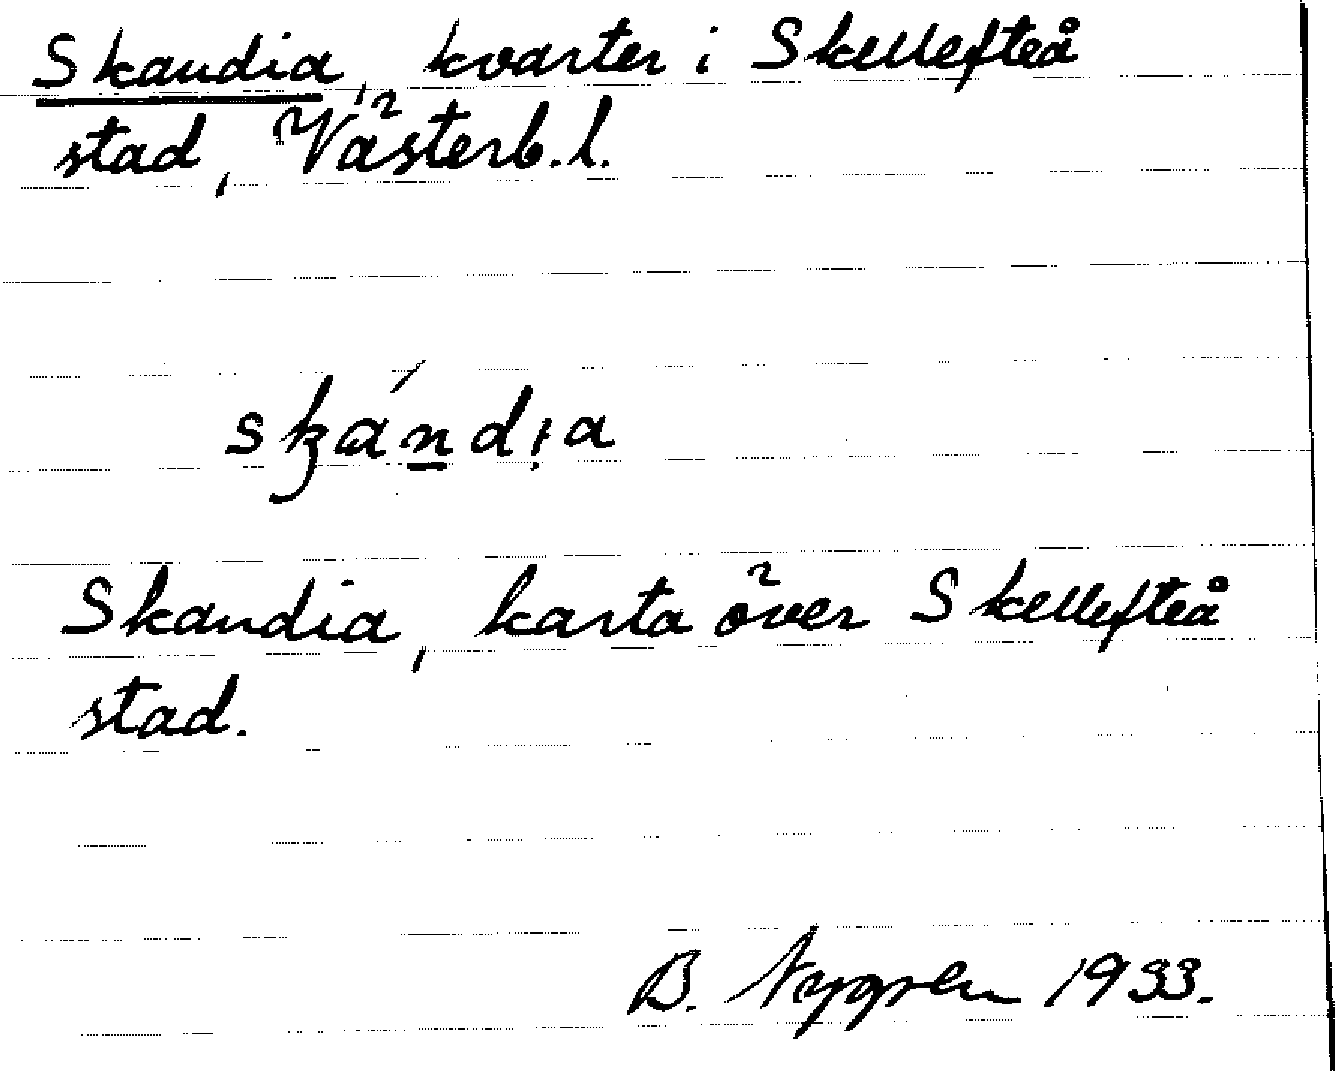 Skandia, kvarter i Skellefteå
stad, Västerb.l.
skándia
Skandia, karta över Skellefteå
stad.
B. Nygren 1933.